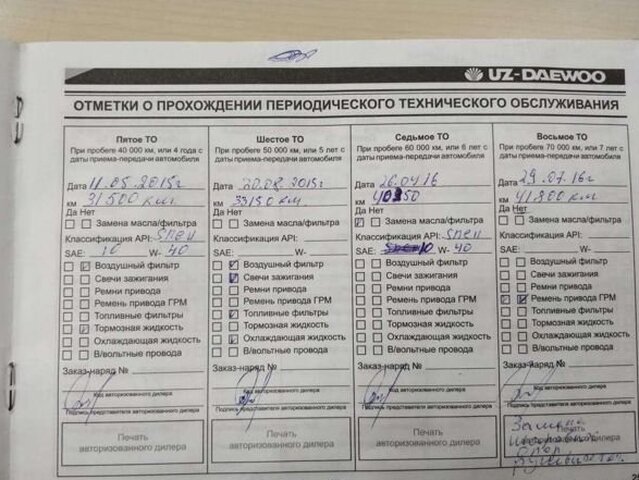 UZ-DAEWOO
ОТМЕТКИ О ПРОХОЖДЕНИИ ПЕРИОДИЧЕСКОГО ТЕХНИЧЕСКОГО ОБСЛУЖИВАНИЯ
Пятое ТО
При пробеге 40 000 км, или 4 года с
даты приема-передачи автомобиля
Дата 11.05.2015г
км 31500 км.
Да Нет
Замена масла/фильтра
Классификация API: Shell
SAE: 10 W- 40
Воздушный фильтр
Свечи зажигания
Ремни привода
Ремень привода ГРМ
Топливные фильтры
Тормозная жидкость
Охлаждающая жидкость
В/вольтные провода
Заказ-наряд №
Код авторизованного дилера
Подпись представителя авторизованного дилера
Печать
авторизованного дилера
Шестое ТО
При пробеге 50 000 км, или 5 лет с
даты приема-передачи автомобиля
Дата 20.08.2015г
км 33150 км
Да Нет
Замена масла/фильтра
Классификация API:
SAE: W-
Воздушный фильтр
Свечи зажигания
Ремни привода
Ремень привода ГРМ
Топливные фильтры
Тормозная жидкость
Охлаждающая жидкость
В/вольтные провода
Заказ-наряд №
Код авторизованного дилера
Подпись представителя авторизованного дилера
Печать
авторизованного дилера
Седьмое ТО
При пробеге 60 000 км, или 6 лет с
даты приема-передачи автомобиля
Дата 26.04.16
км
Да Нет
Замена масла/фильтра
Классификация API: Shell
SAE: 10 W- 40
Воздушный фильтр
Свечи зажигания
Ремни привода
Ремень привода ГРМ
Топливные фильтры
Тормозная жидкость
Охлаждающая жидкость
В/вольтные провода
Заказ-наряд №
Код авторизованного дилера
Подпись представителя авторизованного дилера
Печать
авторизованного дилера
Восьмое ТО
При пробеге 70 000 км, или 7 лет с
даты приема-передачи автомобиля
Дата 29.07.16г
км 41800 км
Да Нет
Замена масла/фильтра
Классификация API:
SAE: W-
Воздушный фильтр
Свечи зажигания
Ремни привода
Ремень привода ГРМ
Топливные фильтры
Тормозная жидкость
Охлаждающая жидкость
В/вольтные провода
Заказ-наряд №
Код авторизованного дилера
Подпись представителя авторизованного дилера
Печать
авторизованного дилера
Замена